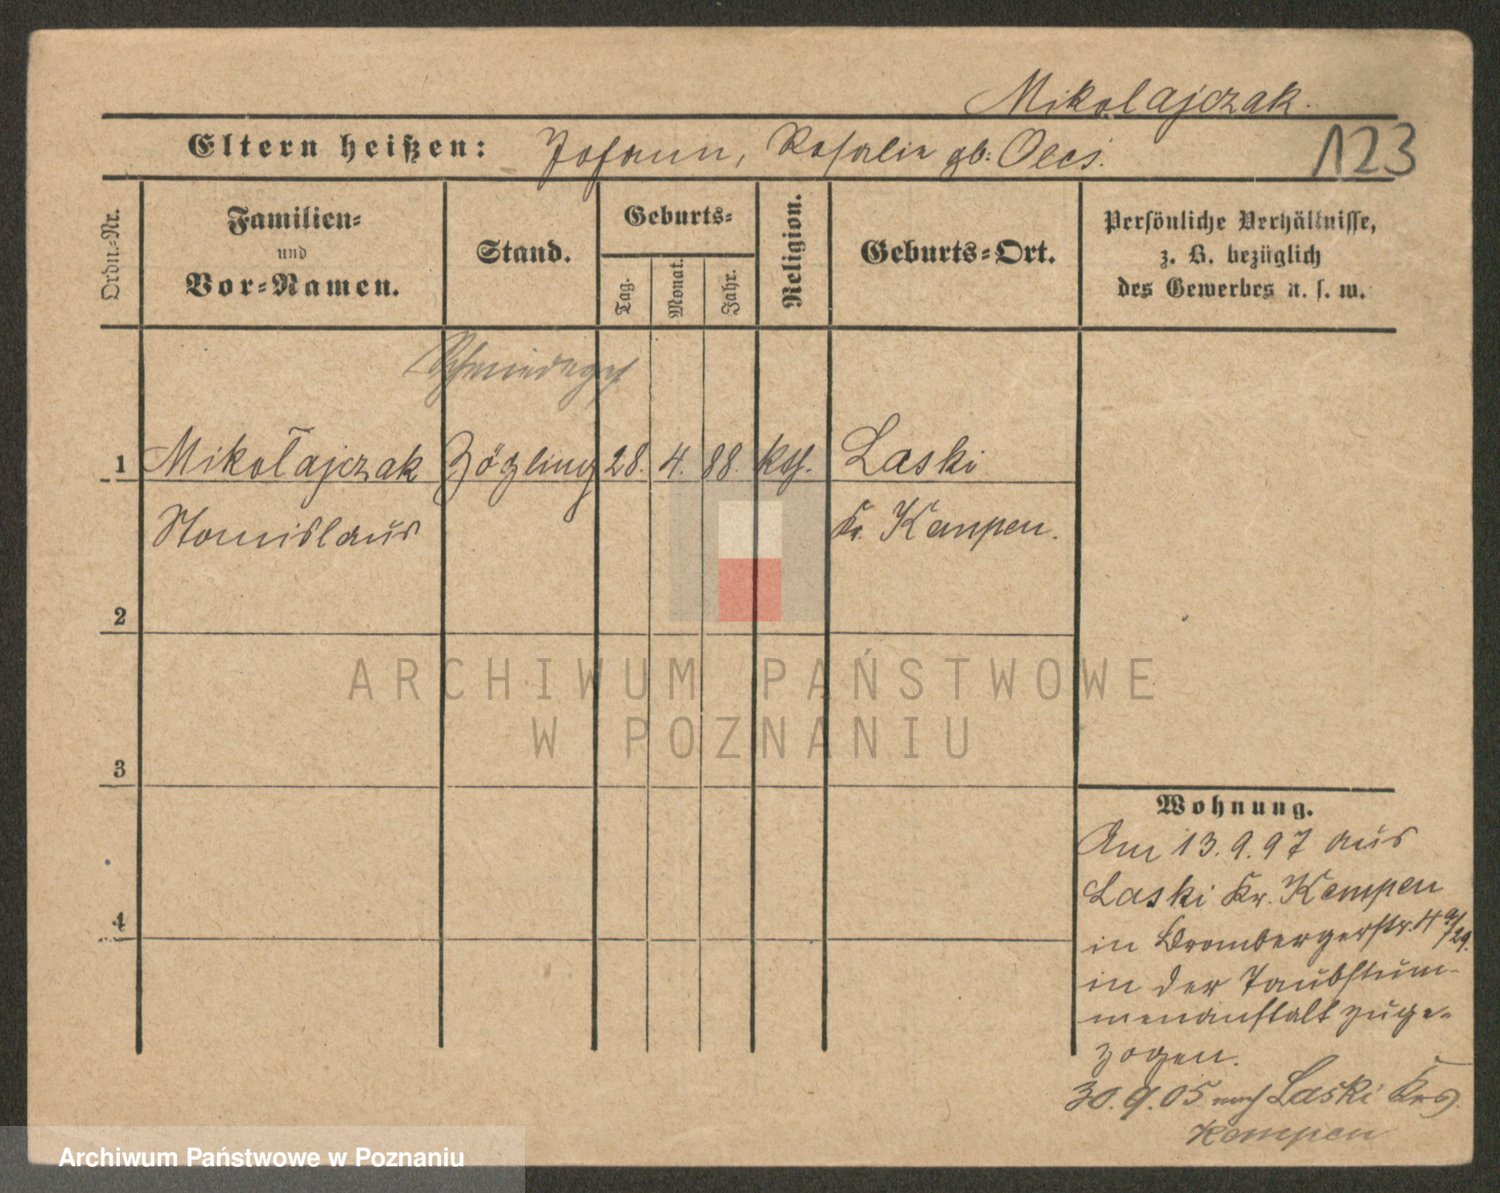 Mikolajczak.
Eltern heißen: Johann, Rosalie gb: Olees.
123
Ordn.-Nr.
Familien-
und
Vor-Namen.
Stand.
Geburts-
Tag.
Monat.
Jahr.
Religion.
Geburts-Ort.
Persönliche Verhältnisse,
z. B. bezüglich
des Gewerbes u. s. w.
Schmiedeges
1 Mikołajczak Zögling 28. 4. 88. kth. Laski
Stanislaus Kr. Kempen.
2
ARCHIWUM PAŃSTWOWE
W POZNANIU
3
Wohnung.
Am 13.9.97 aus
Laski Kr. Kempen
in Brombergerstr. 4 a/29.
4
in der Taubstum-
menanstalt zuge-
zogen.
30.9.05 nach Laski Krs.
Kempen
Archiwum Państwowe w Poznaniu